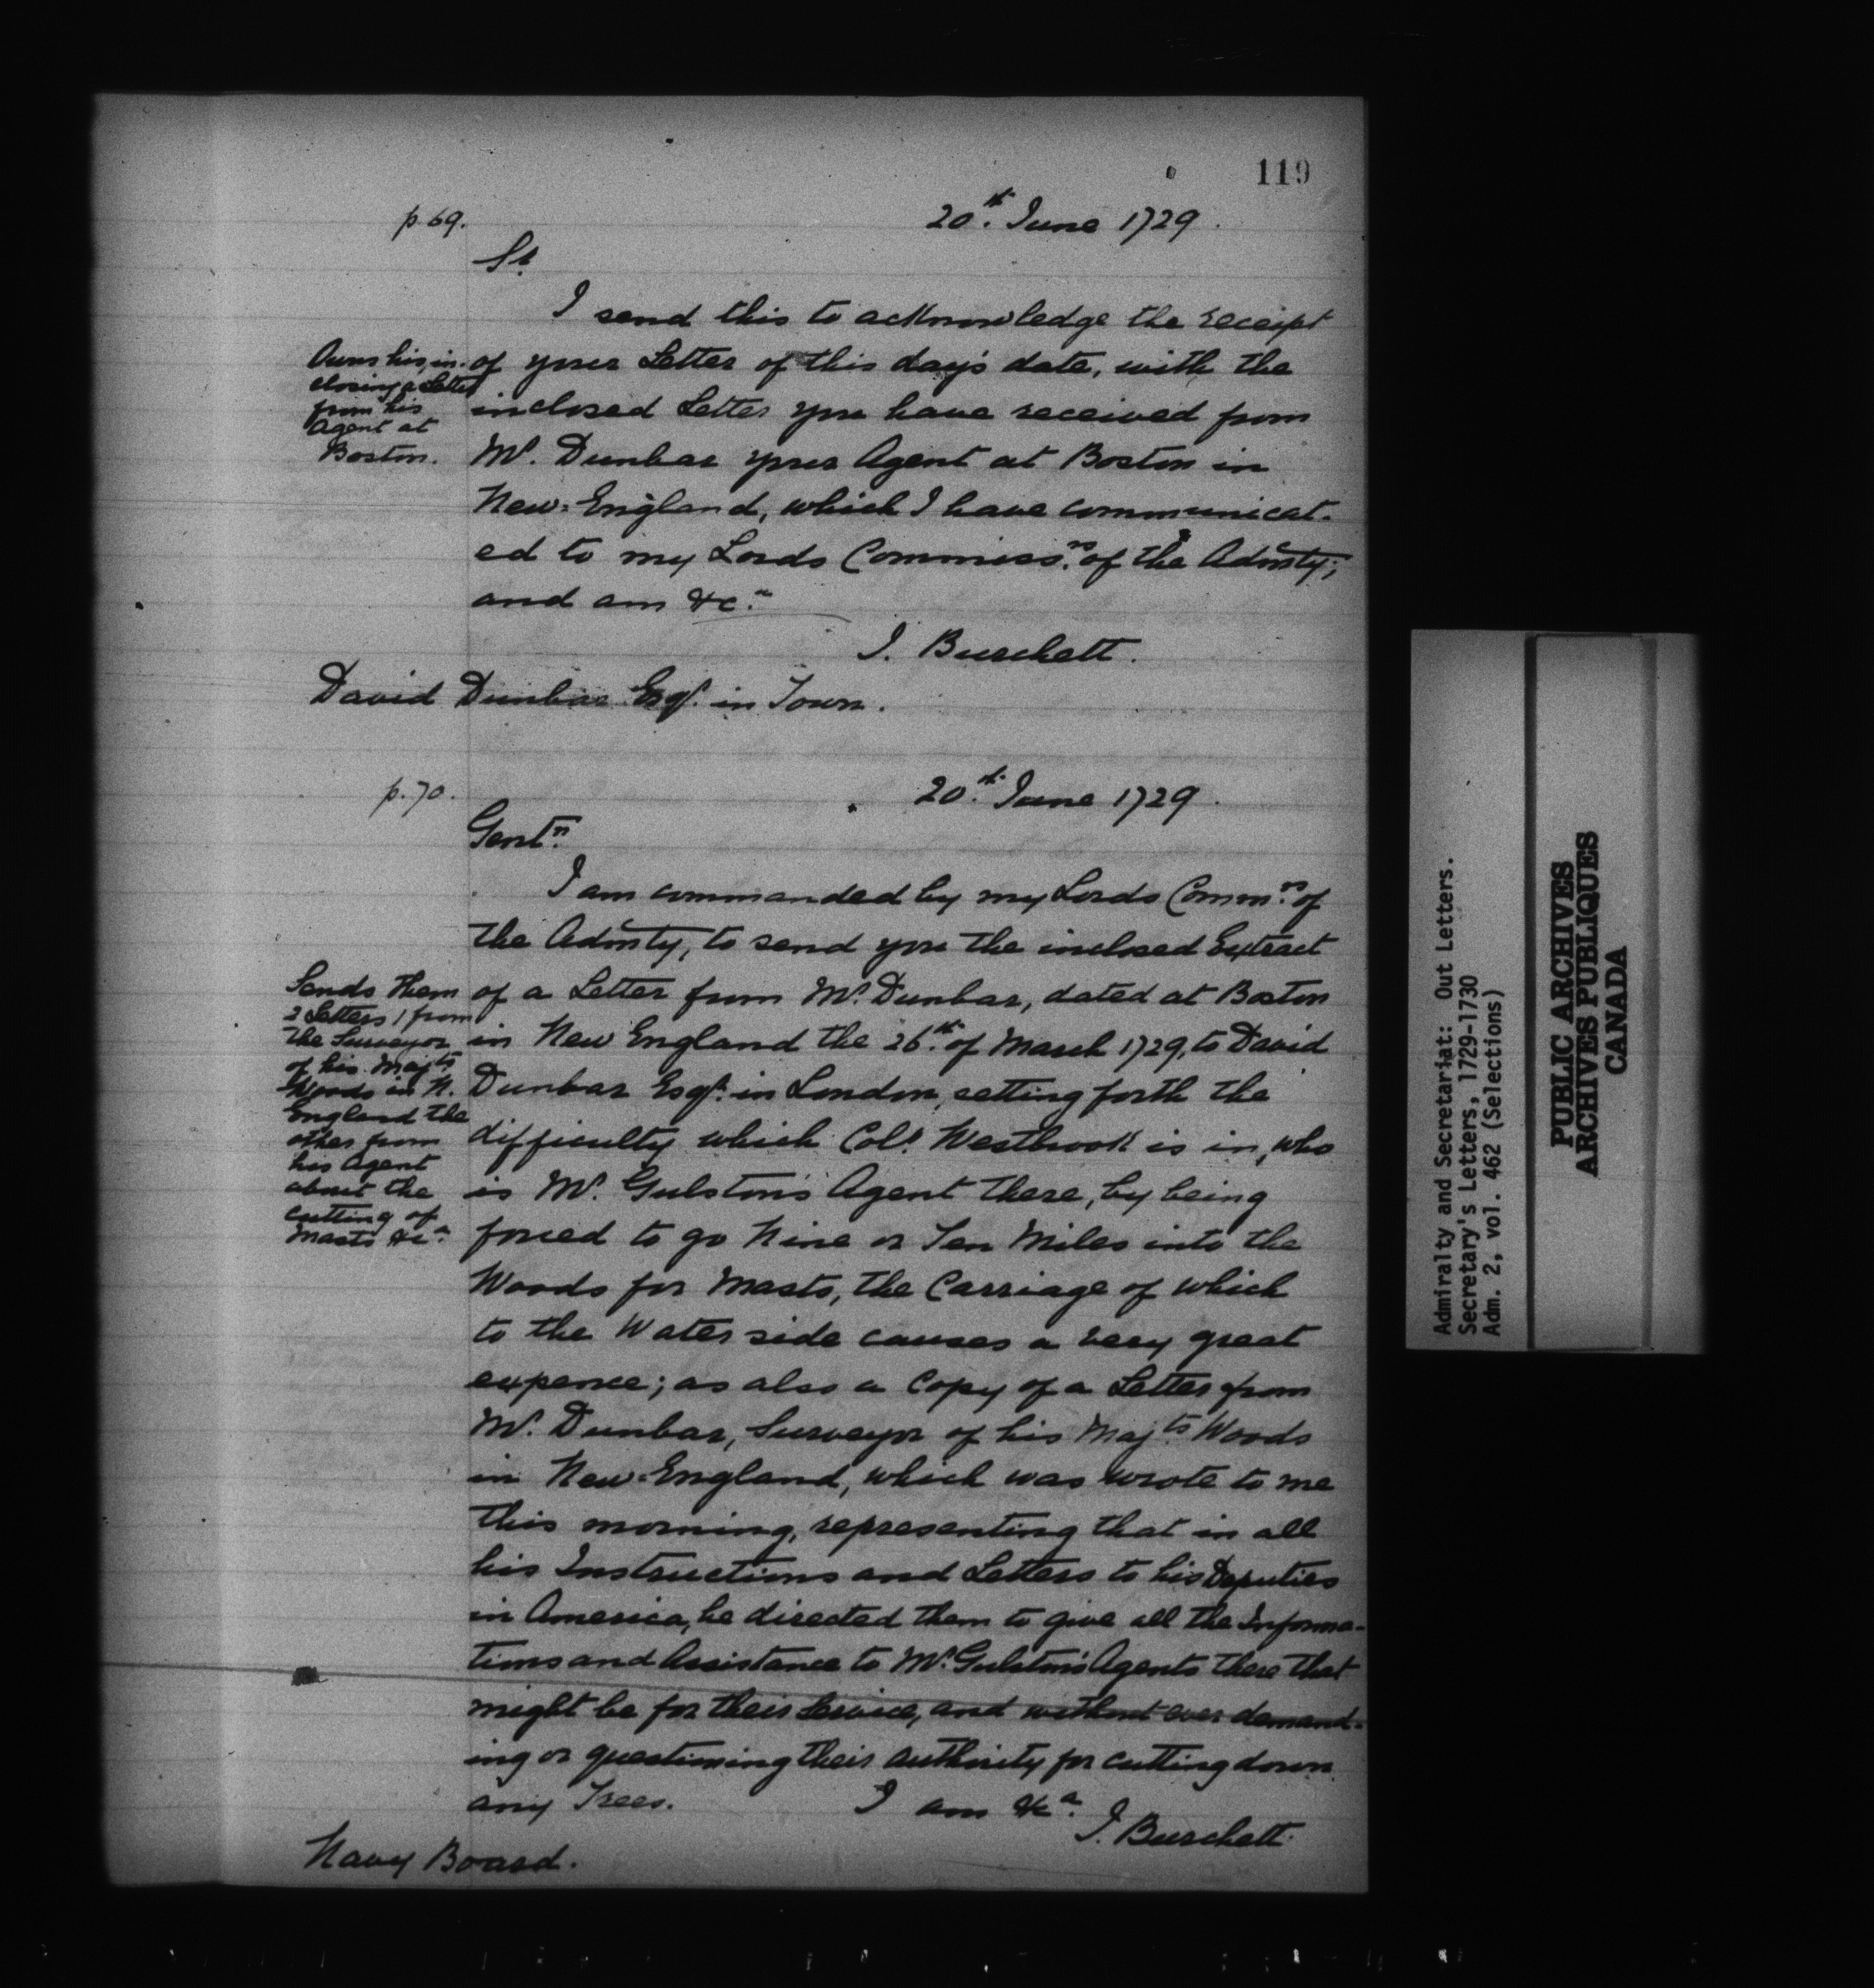 119
p. 69.
20th. June 1729.
Sr.
I send this to acknowledge the receipt
of your Letter of this day's date, with the
inclosed Letter you have received from
Mr. Dunbar your Agent at Boston in
New=England, which I have communicat-
ed to my Lords Commissrs. of the Admty;
and am &ca.
J. Burchett.
David Dunbar Esqr. in Town.
Owns his, in-
closing a Letter
from his
Agent at
Boston.
p. 70.
20th. June 1729.
Gentn.
I am commanded by my Lords Commrs. of
the Admty, to send you the inclosed Extract
of a Letter from Mr. Dunbar, dated at Boston
in New England the 26th. of March 1729, to David
Dunbar Esqr. in London, setting forth the
difficulty which Coll. Westbrook is in, who
is Mr. Gulston's Agent there, by being
forced to go Nine or Ten Miles into the
Woods for Masts, the Carriage of which
to the Water side causes a very great
expence; as also a Copy of a Letter from
Mr. Dunbar, Surveyor of his Majts. Woods
in New=England, which was wrote to me
this morning, representing that in all
his Instructions and Letters to his Deputies
in America, he directed them to give all the Informa-
tions and Assistance to Mr. Gulston's Agents there that
might be for their Service, and without ever demand-
ing or questioning their authority for cutting down
any Trees. I am &ca.
J. Burchett.
Navy Board.
Sends them
2 Letters 1 from
the Surveyor
of his Majts
Woods in N.
England the
other from
his Agent
about the
cutting of
Masts &ca.
Admiralty and Secretariat: Out Letters.
Secretary's Letters, 1729-1730
Adm. 2, vol. 462 (Selections)
PUBLIC ARCHIVES
ARCHIVES PUBLIQUES
CANADA